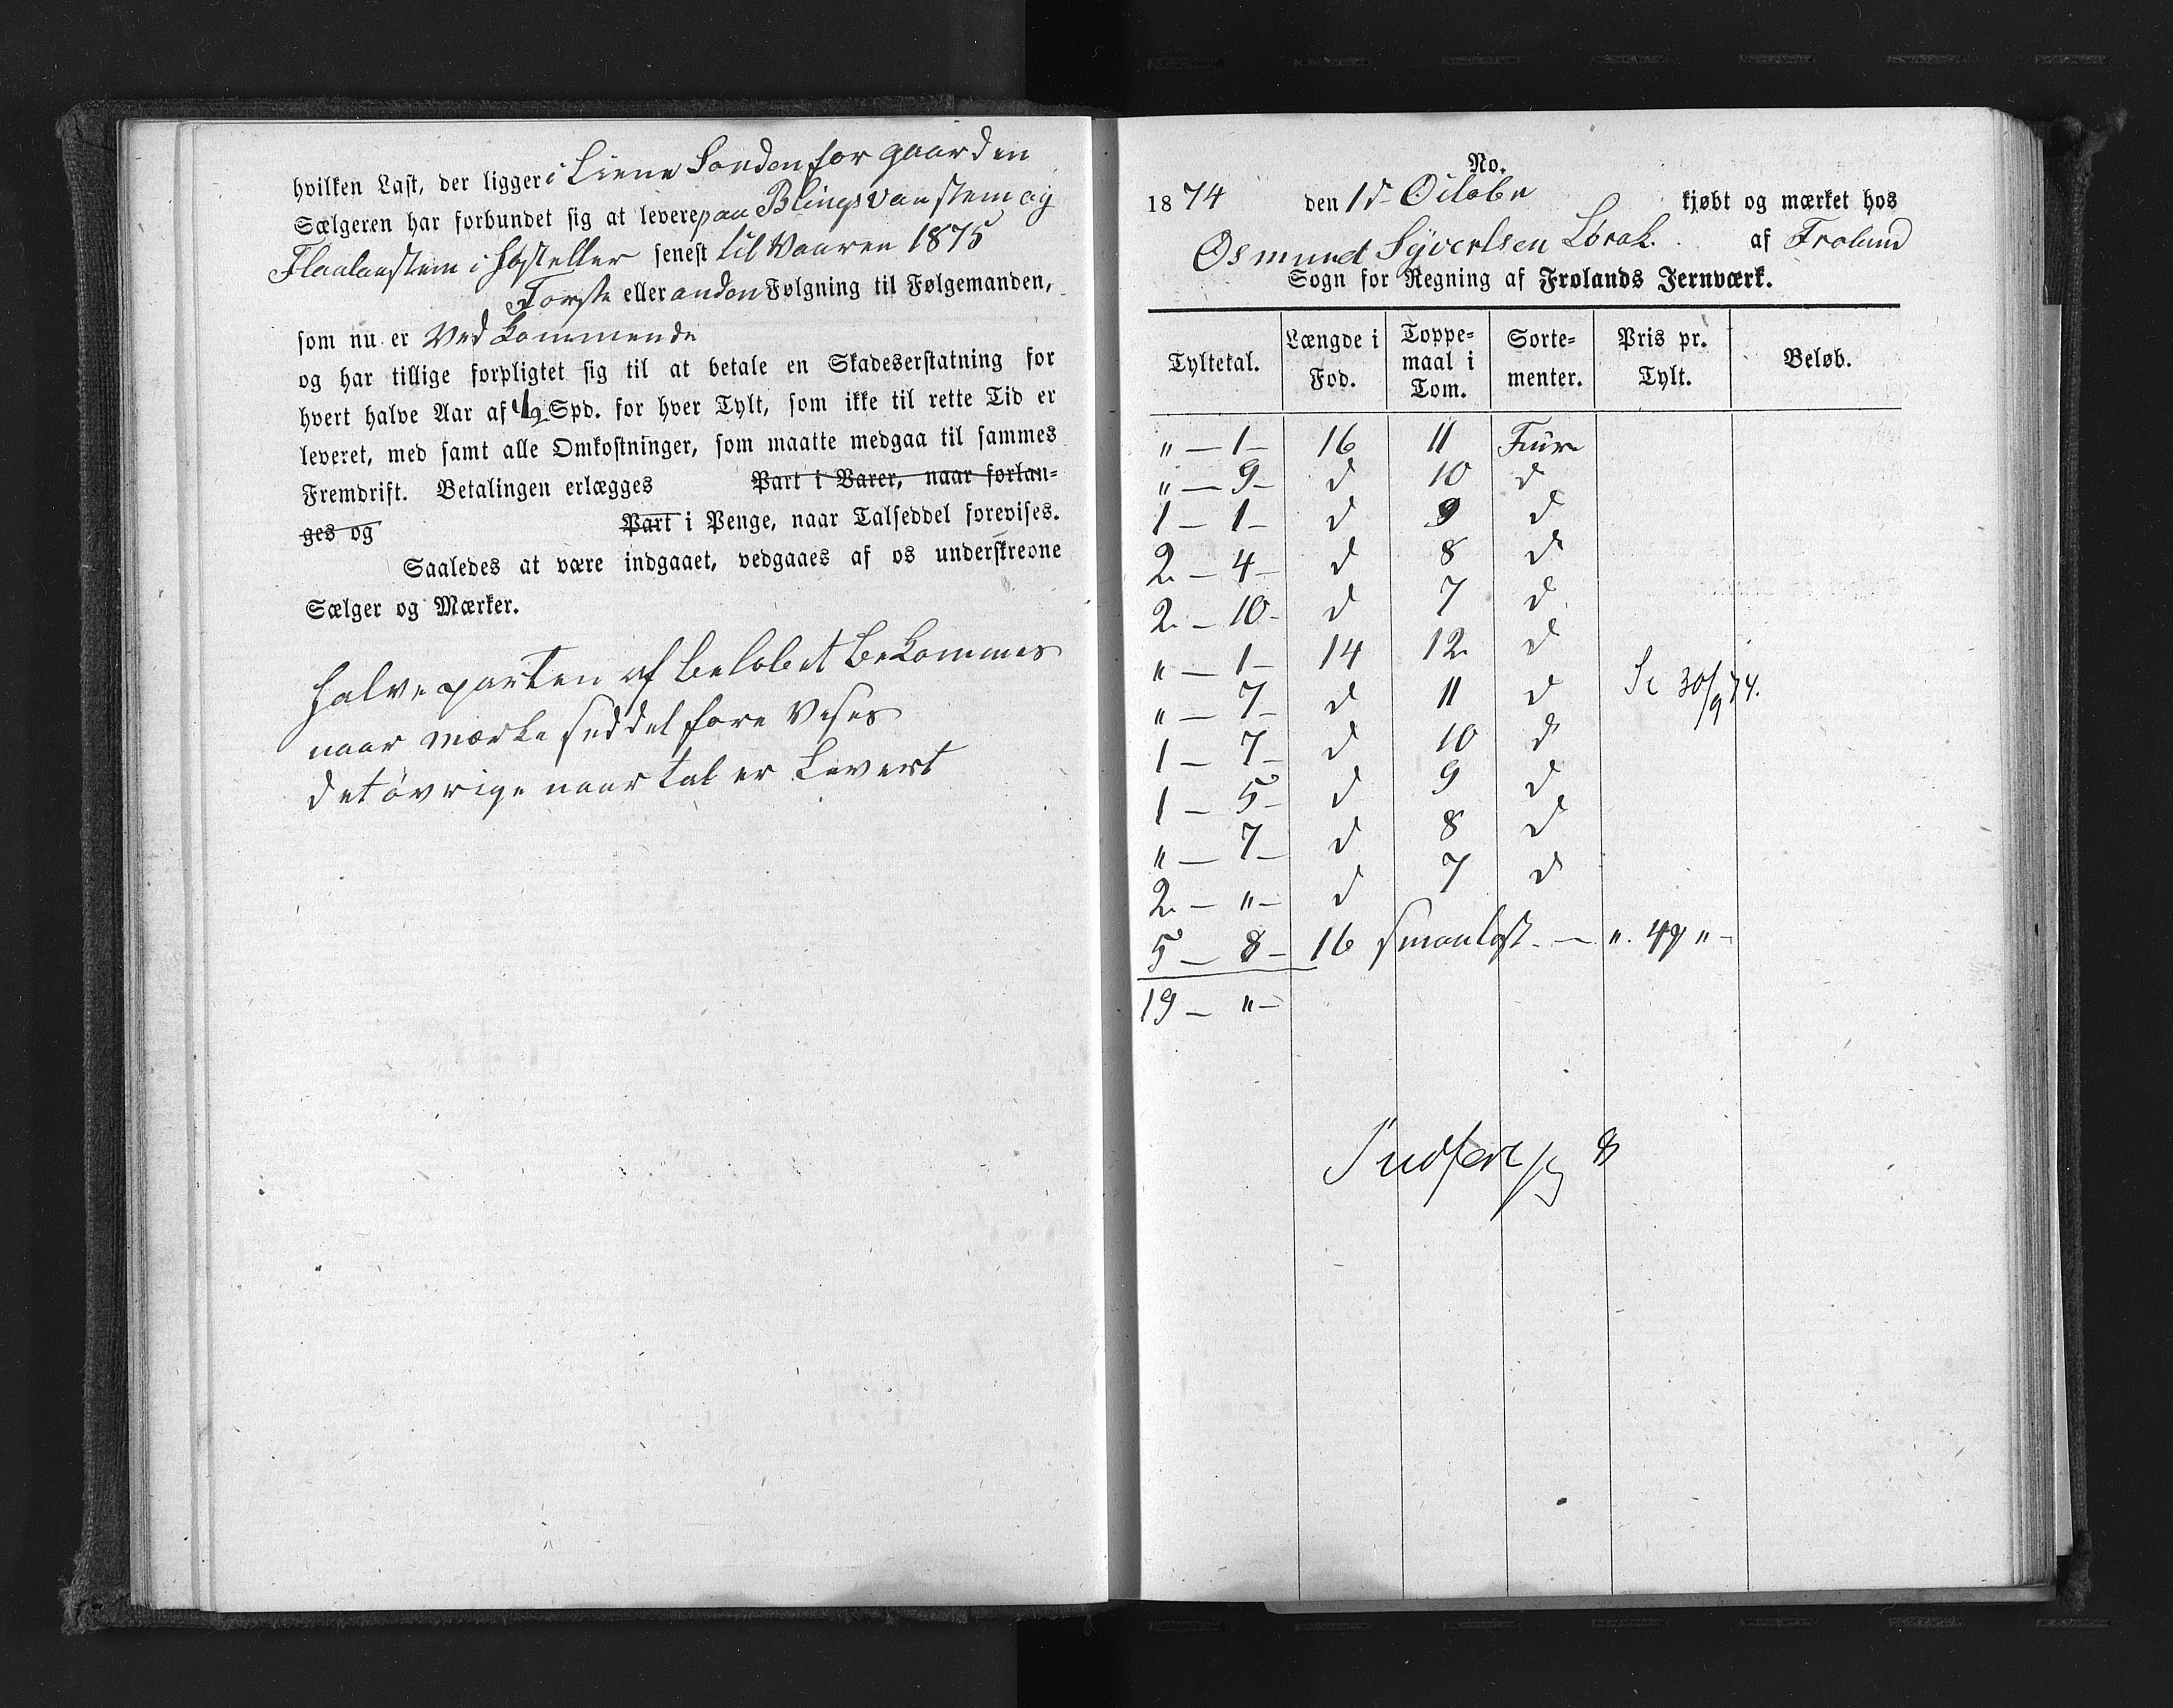 hvilken Last, der ligger i Liene Sonden for gaarden
Sælgeren har forbundet sig at levere paa Blingsvanstem og
Flaalanstem i Høst eller senest til Vaaren 1875
Første eller anden Følgning til Følgemanden,
som nu er Vedkommende
og har tillige forpligtet sig til at betale en Skadeserstatning for
hvert halve Aar af 1/2 Spd. for hver Tylt, som ikke til rette Tid er
leveret, med samt alle Omkostninger, som maatte medgaa til sammes
Fremdrift. Betalingen erlægges Part i Varer, naar forlan-
ges og Part i Penge, naar Talseddel forevises.
Saaledes at være indgaaet, vedgaaes af os underskrevne
Sælger og Mærker.
halve parten af beløbet bekommes
naar mærke seddel fore Vises
det øvrige naar tal er Levert
No.
1874 den 15 Octobr kjøbt og mærket hos
Osmund Syvertsen af Froland
Sogn for Regning af Frolands Jernværk.
Tyltetal. Længde i Fod. Toppe-maal i Tom. Sorte-menter. Pris pr. Tylt. Beløb.
" — 1 — 16 11 Furu
" — 9 — d 10 d
1 — 1 — d 9 d
2 — 4 — d 8 d
2 — 10 — d 7 d
" — 1 — 14 12 d
" — 7 — d 11 d Sc 30/9 74.
1 — 7 — d 10 d
1 — 5 — d 9 d
" — 7 — d 8 d
2 — " — d 7 d
5 — 8 — 16 smaalast — ". 49 " —
19 — " —
Indført 8